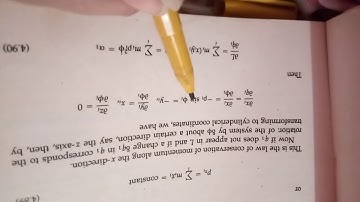 or
Pₓ = Σ mᵢẋᵢ = constant
This is the law of conservation of momentum along the x-direction.
Now if q₁ does not appear in L and if a change δq₁ in q₁ corresponds to the
rotation of the system by δϕ about a certain direction, say the z-axis, then, by
transforming to cylinderical coordinates, we have
∂xᵢ/∂q₁ = ∂xᵢ/∂ϕᵢ = −ρᵢ sin ϕᵢ = −yᵢ, ∂yᵢ/∂ϕᵢ = xᵢ, ∂zᵢ/∂ϕᵢ = 0
Then
∂L/∂q̇₁ = Σ mᵢ(xᵢẏᵢ = Σ mᵢρᵢ²ϕ̇ᵢ = α₁ (4.90)